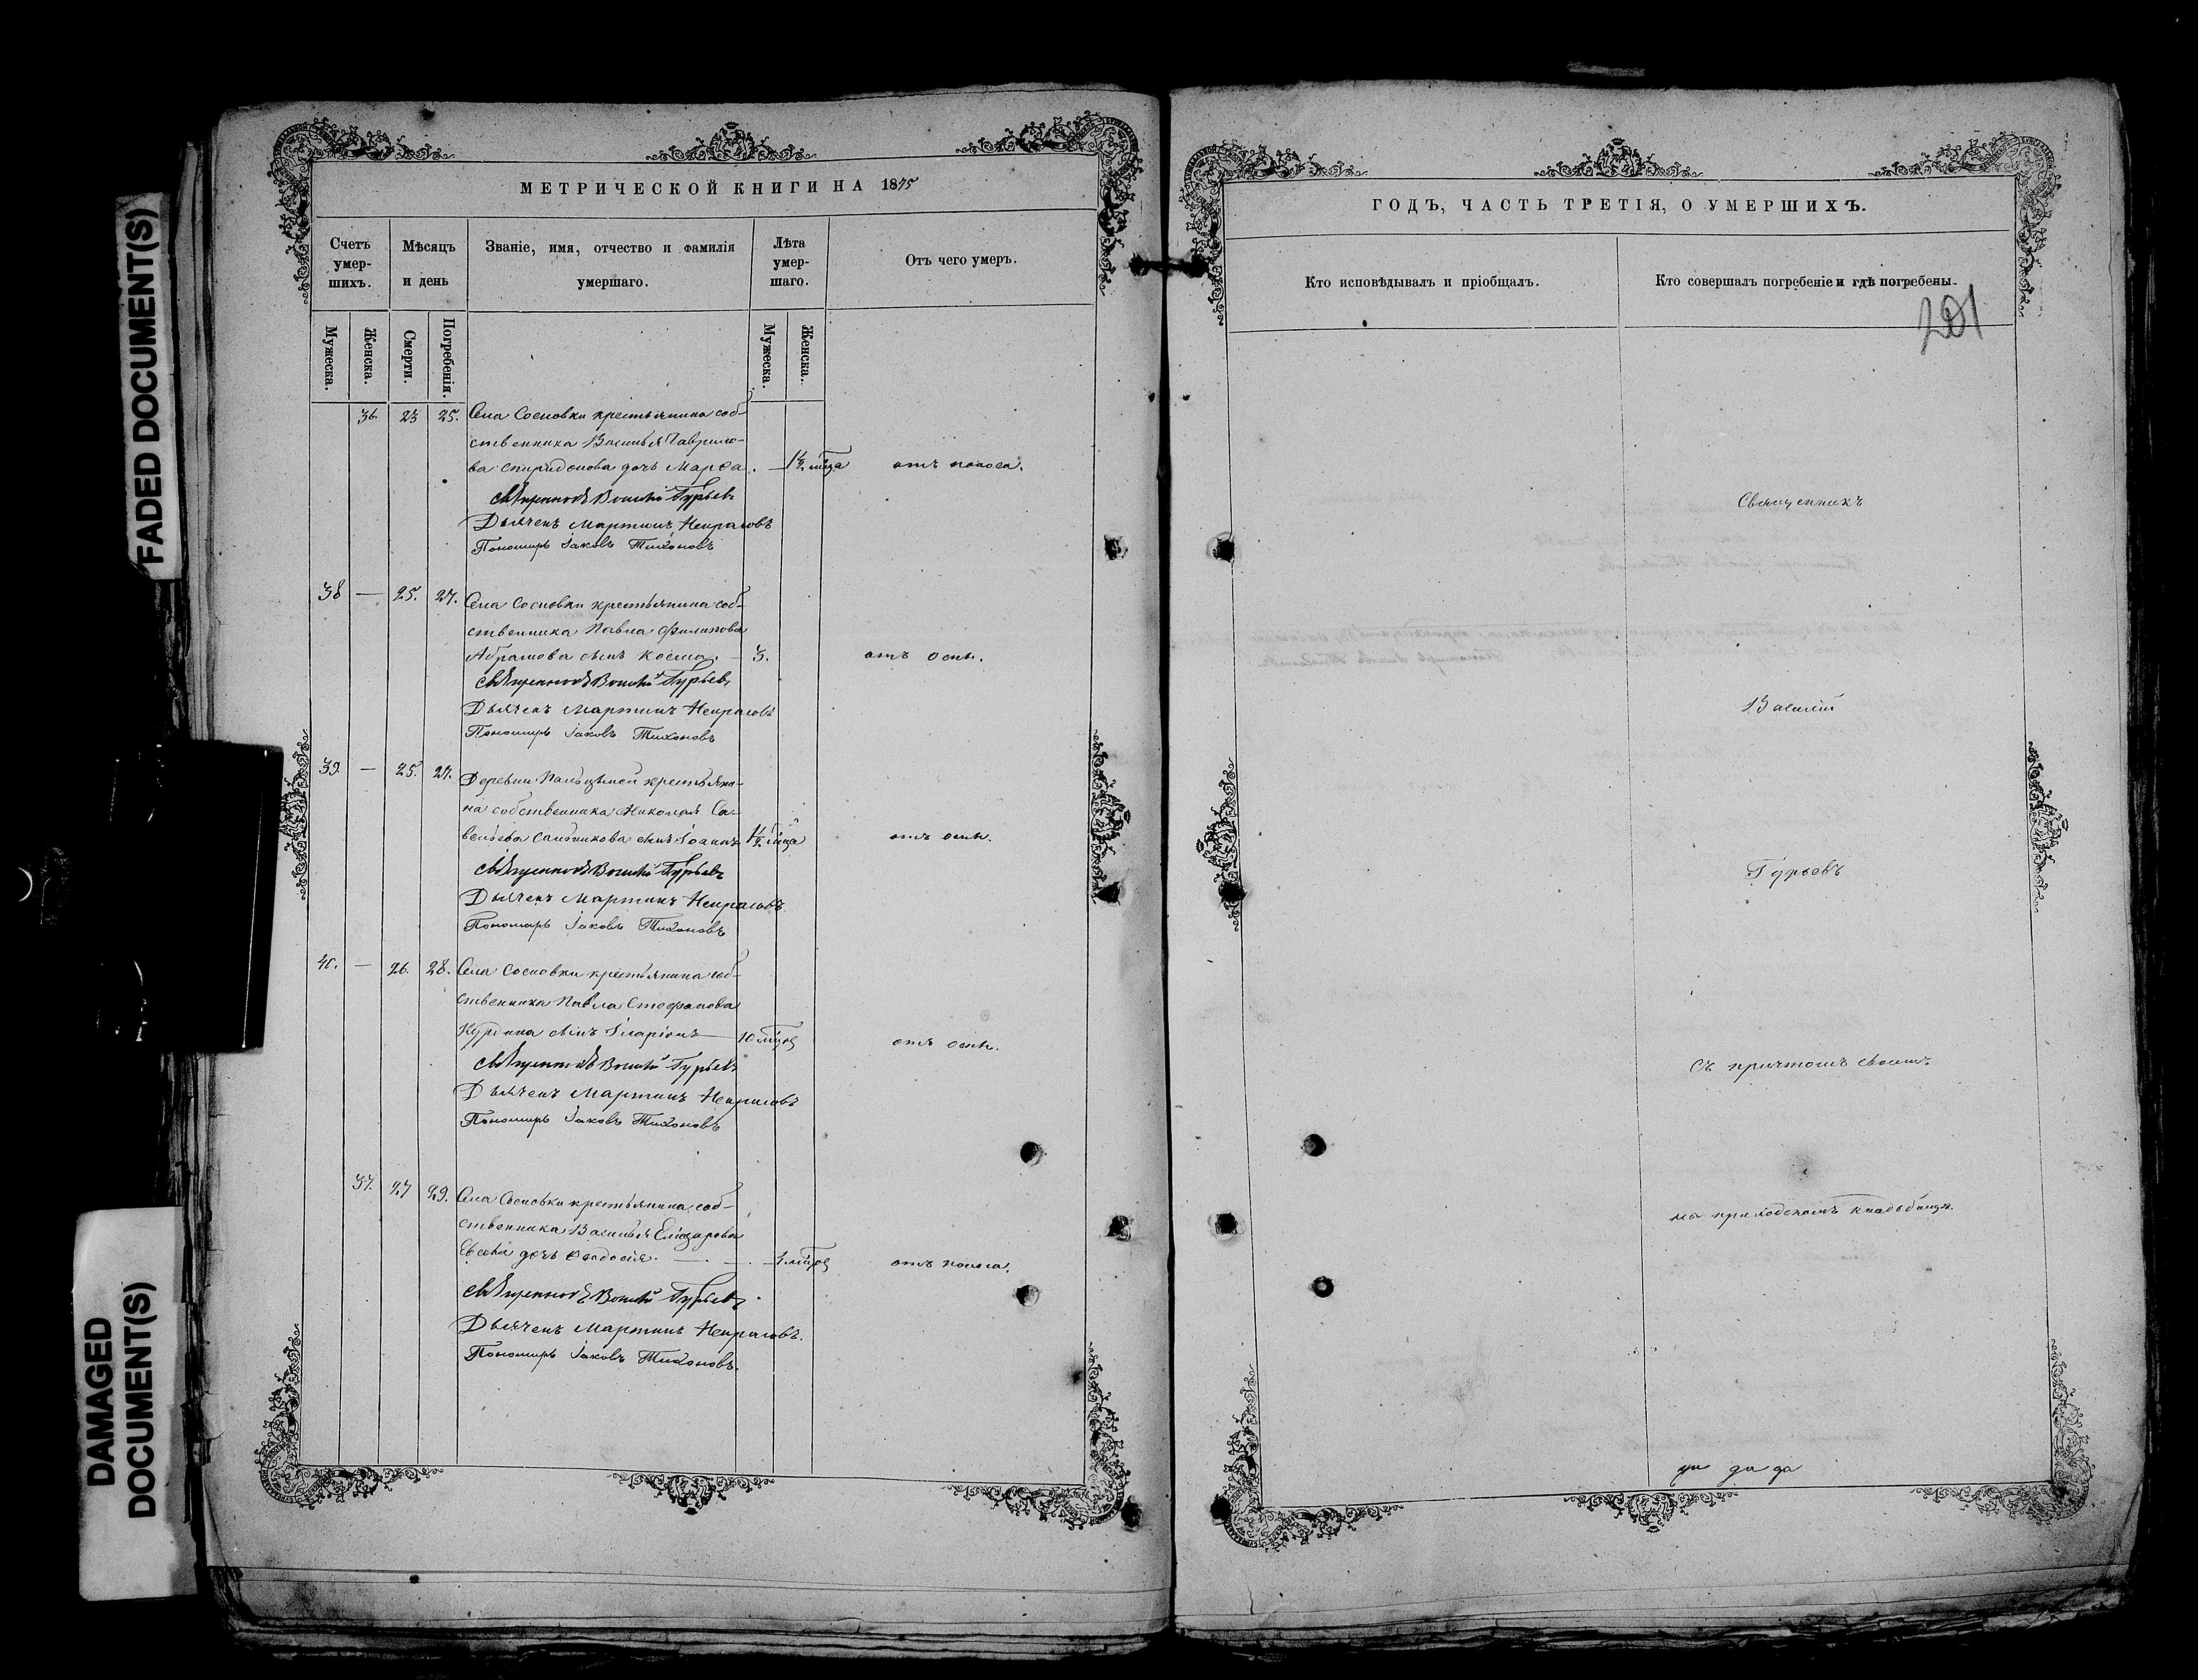 FADED DOCUMENT(S)
DAMAGED
DOCUMENT(S)
МЕТРИЧЕСКОЙ КНИГИ НА 1875
Счетъ умер-шихъ.
Мѣсяцъ и день
Званіе, имя, отчество и фамилія умершаго.
Лѣта умер-шаго.
Отъ чего умеръ.
Мужеска.
Женска.
Смерти.
Погребенія.
Мужеска.
Женска.
36 23 25. Села Сосновки крестьянина соб-
ственника Василья Гаврило-
ва Спиридонова дочь Марѳа. — 1½ мца отъ поноса.
Священникъ Василій Гурьевъ
Дьячекъ Мартинъ Некрасовъ
Пономарь Іаковъ Тихоновъ
38 — 25. 27. Села Сосновки крестьянина соб-
ственника Павла Филипова
Абрамова сынъ Косма. — 3. отъ оспы.
Священникъ Василій Гурьевъ
Дьячекъ Мартинъ Некрасовъ
Пономарь Іаковъ Тихоновъ
39 — 25. 27. Деревни крестьяни-
на собственника Николая Са-
вельева сынъ Іоаннъ 1½ мца отъ оспы.
Священникъ Василій Гурьевъ
Дьячекъ Мартинъ Некрасовъ
Пономарь Іаковъ Тихоновъ
40. — 26. 28. Села Сосновки крестьянина соб-
ственника Павла Стефанова
сынъ Иларіонъ — 10 мцов отъ оспы.
Священникъ Василій Гурьевъ
Дьячекъ Мартинъ Некрасовъ
Пономарь Іаковъ Тихоновъ
37. 27 29. Села Сосновки крестьянина соб-
ственника Василья Елизарова
дочь Ѳеодосія. — отъ поноса.
Священникъ Василій Гурьевъ.
Дьячекъ Мартинъ Некрасовъ.
Пономарь Іаковъ Тихоновъ.
ГОДЪ, ЧАСТЬ ТРЕТІЯ, О УМЕРШИХЪ.
Кто исповѣдывалъ и пріобщалъ.
Кто совершалъ погребеніе и гдѣ погребены.
201
Священникъ
Василій
Гурьевъ
съ причтомъ своимъ
на приходскомъ кладбищѣ.